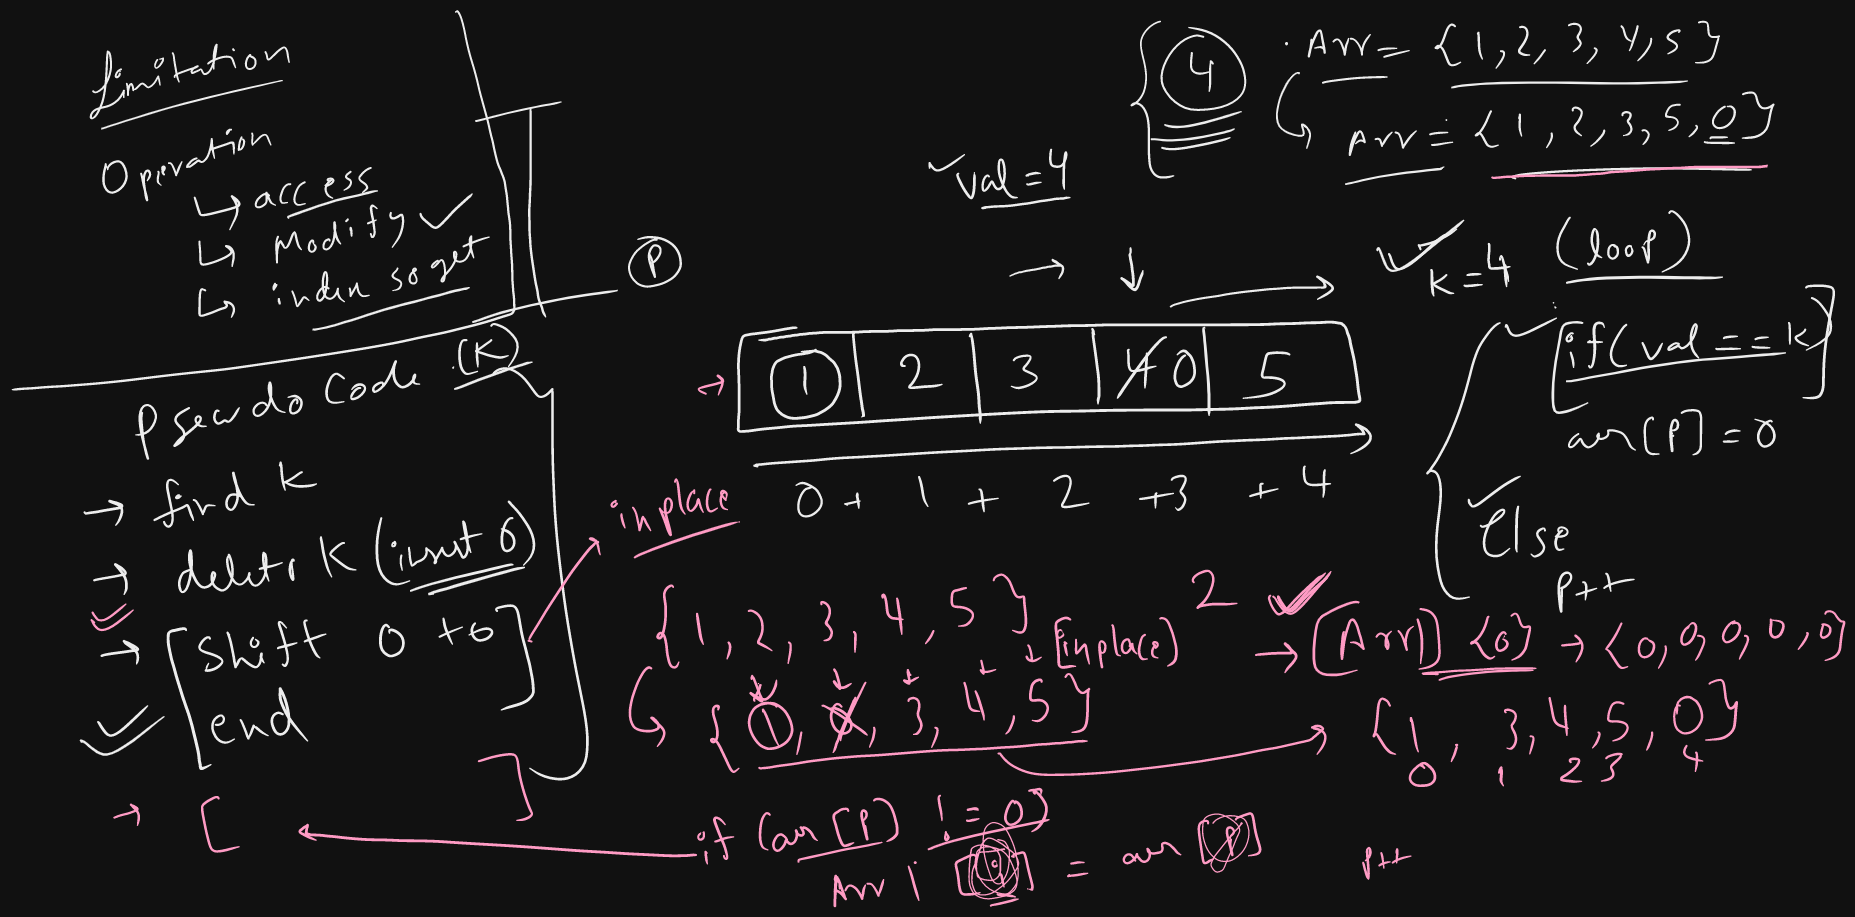 Limitation
Operation
↳ access
↳ Modify ✓
↳ index so get
P
Pseudo Code (K)
→ find K
→ delete K (insert 0)
→ [Shift 0 to
end]
→ [ ]
4
Arr = {1, 2, 3, 4, 5}
Arr = {1, 2, 3, 5, 0}
✓ val = 4
→ ↓
✓ K = 4 (loop)
✓ [if (val == K)]
arr[P] = 0
✓ Else
P++
1 2 3 4 0 5
0 + 1 + 2 + 3 + 4
inplace
{1, 2, 3, 4, 5} [inplace] 2 ✓
→ [Arr]] {0} → {0, 0, 0, 0, 0}
{1, 3, 4, 5}
{1, 3, 4, 5, 0}
0 1 2 3 4
if (arr[P] != 0)
Arr1 [ ] = arr [P]
P++